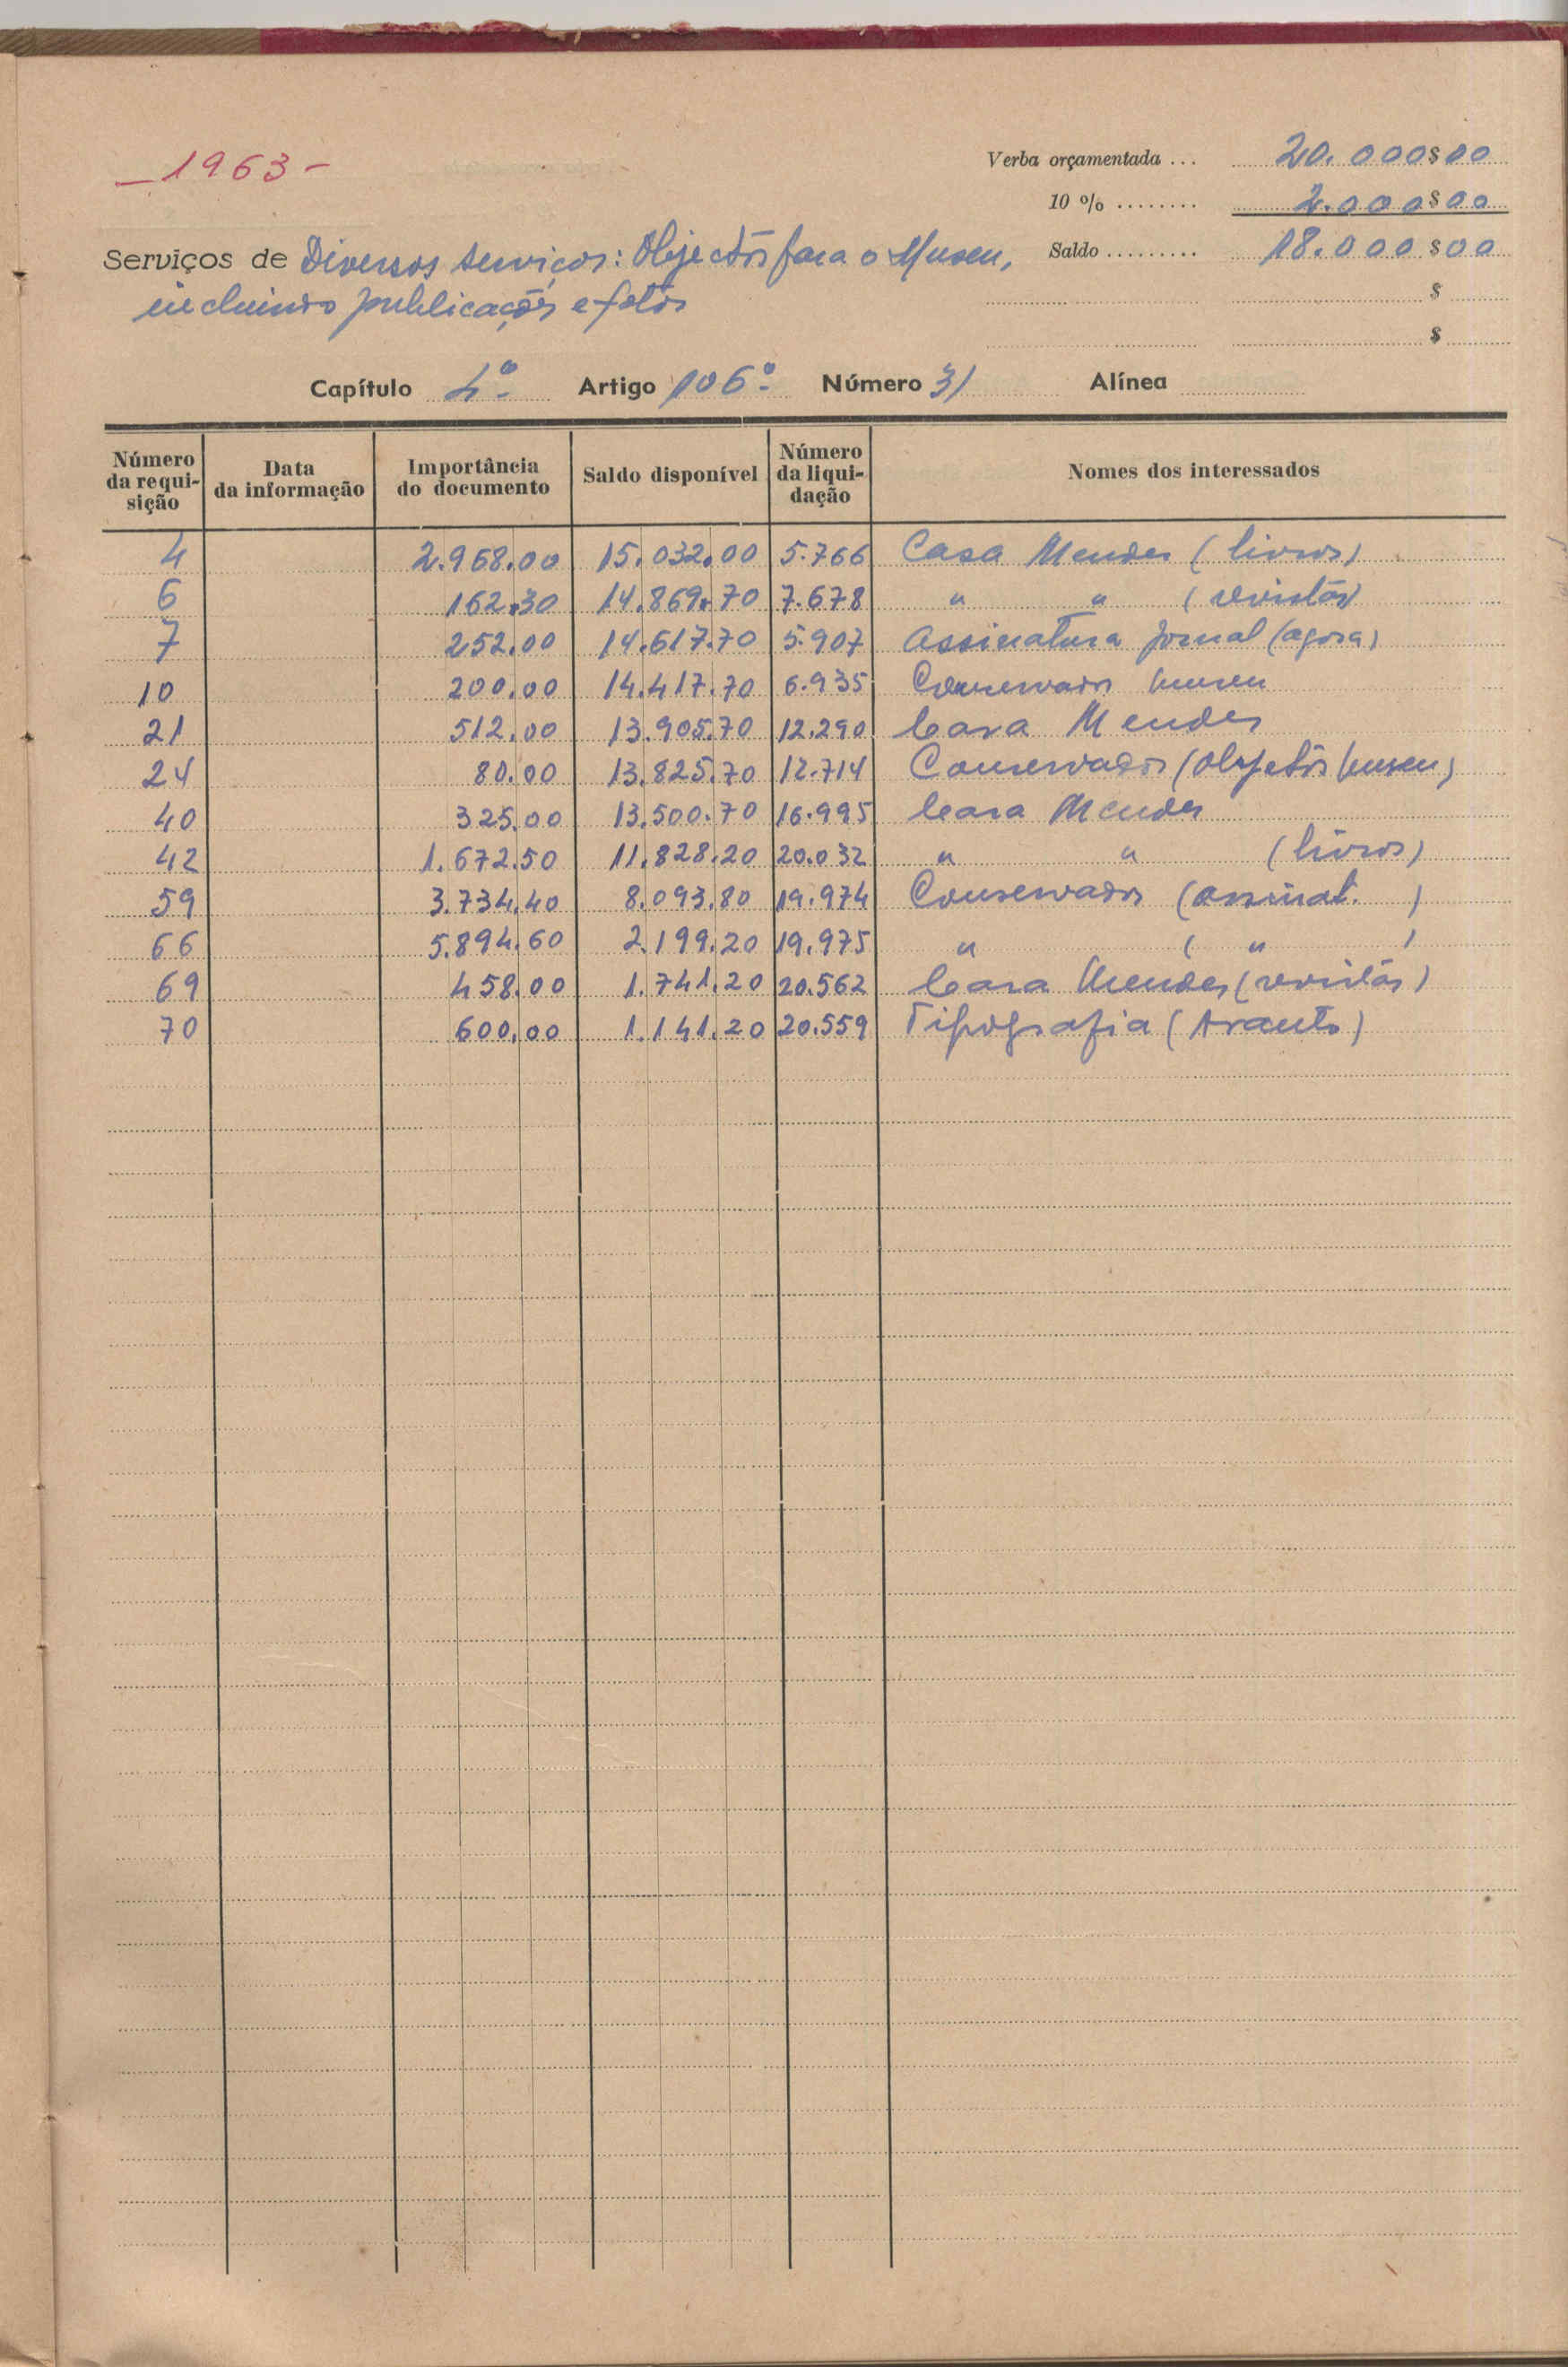 – 1963 –
Verba orçamentada ... 20.000$00
10 % ........ 2.000$00
Serviços de Diversos serviços: Objectos para o Museu,
Saldo ......... 18.000$00
incluindo publicações e fotos
$
$
Capítulo 4.º Artigo 106.º Número 31 Alínea
Número da requi-sição Data da informação Importância do documento Saldo disponível Número da liqui-dação Nomes dos interessados
4 2.968.00 15.032.00 5.766 Casa Mendes (livros)
6 162.30 14.869.70 7.678 " " (revistas)
7 252.00 14.617.70 5.907 Assinatura jornal (agora)
10 200.00 14.417.70 6.935 Conservador museu
21 512.00 13.905.70 12.290 Casa Mendes
24 80.00 13.825.70 12.714 Conservador (objetos museu)
40 325.00 13.500.70 16.995 Casa Mendes
42 1.672.50 11.828.20 20.032 " " (livros)
59 3.734.40 8.093.80 19.974 Conservador (assinat. )
66 5.894.60 2.199.20 19.975 " ( " )
69 458.00 1.741.20 20.562 Casa Mendes (revistas)
70 600.00 1.141.20 20.559 Tipografia (Arauto)